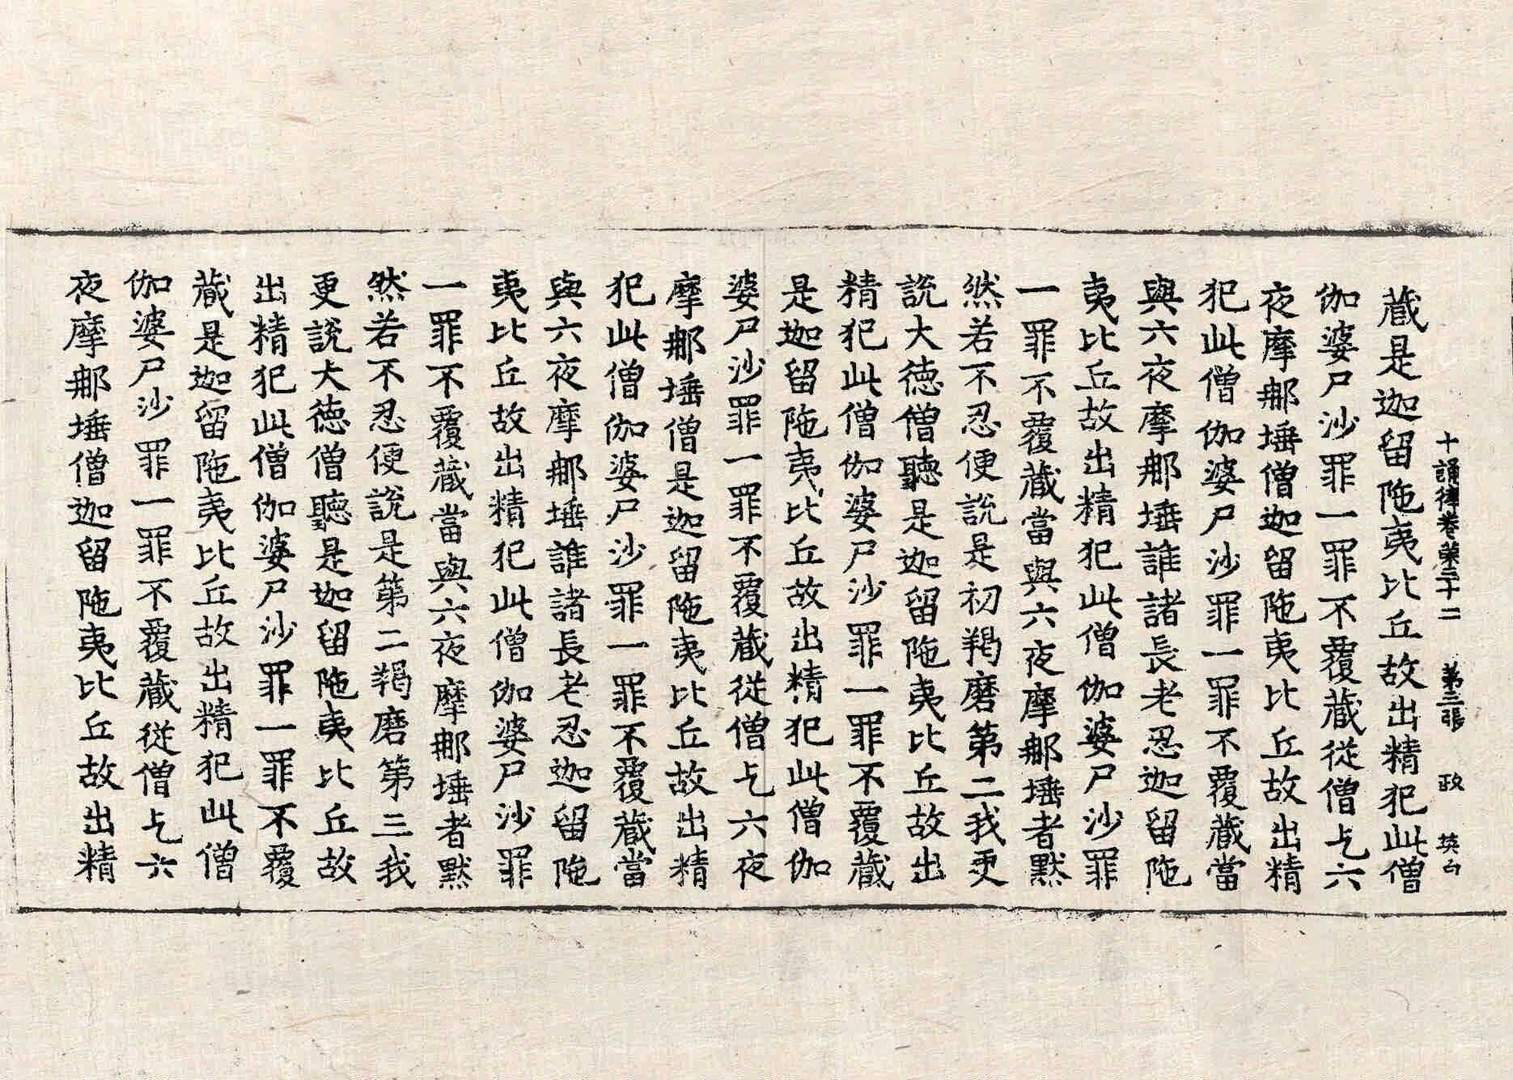 十誦律卷第三十二 第三張 政 英白
藏是迦留陁夷比丘故出精犯此僧
伽婆尸沙罪一罪不覆藏從僧乞六
夜摩那埵僧迦留陁夷比丘故出精
犯此僧伽婆尸沙罪一罪不覆藏當
與六夜摩那埵誰諸長老忍迦留陁
夷比丘故出精犯此僧伽婆尸沙罪
一罪不覆藏當與六夜摩那埵者默
然若不忍便說是初羯磨第二我更
說大德僧聽是迦留陁夷比丘故出
精犯此僧伽婆尸沙罪一罪不覆藏
是迦留陁夷比丘故出精犯此僧伽
婆尸沙罪一罪不覆藏從僧乞六夜
摩那埵僧是迦留陁夷比丘故出精
犯此僧伽婆尸沙罪一罪不覆藏當
與六夜摩那埵誰諸長老忍迦留陁
夷比丘故出精犯此僧伽婆尸沙罪
一罪不覆藏當與六夜摩那埵者默
然若不忍便說是第二羯磨第三我
更說大德僧聽是迦留陁夷比丘故
出精犯此僧伽婆尸沙罪一罪不覆
藏是迦留陁夷比丘故出精犯此僧
伽婆尸沙罪一罪不覆藏從僧乞六
夜摩那埵僧迦留陁夷比丘故出精